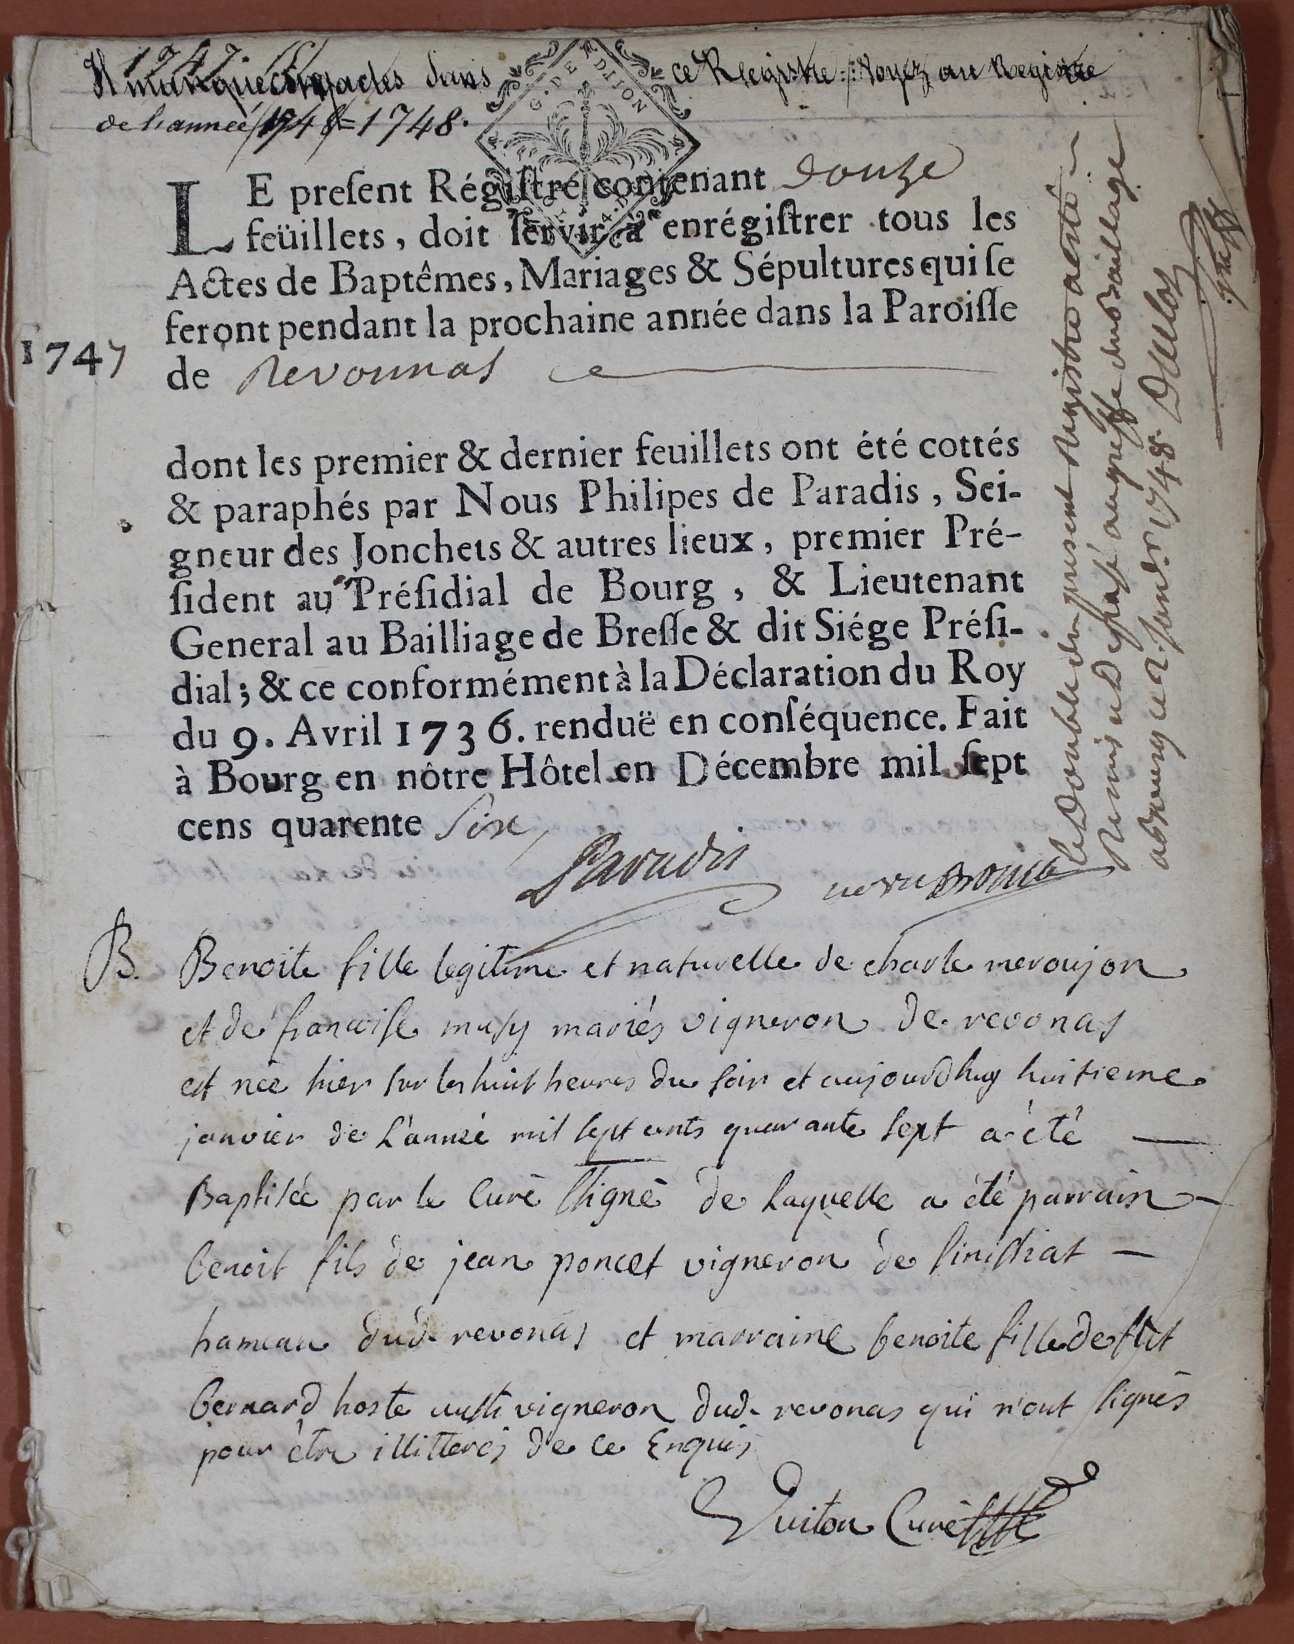 1747
Il manque cinq actes dans ce Registre : voyez au Registre
de l'année 1748 = 1748.
G. DE DIJON
LE present Régistre contenant douze
feüillets, doit servir à enrégistrer tous les
Actes de Baptêmes, Mariages & Sépultures qui se
feront pendant la prochaine année dans la Paroisse
1747
de Revonnas
dont les premier & dernier feuillets ont été cottés
& paraphés par Nous Philipes de Paradis, Sei-
gneur des Jonchets & autres lieux, premier Pré-
sident au Présidial de Bourg, & Lieutenant
General au Bailliage de Bresse & dit Siége Prési-
dial; & ce conformément à la Déclaration du Roy
du 9. Avril 1736. renduë en conséquence. Fait
à Bourg en nôtre Hôtel en Décembre mil sept
cens quarente six
Paradis
le Double du present Registre a esté
Remis et Deposé au greffe du Bailliage
a Bourg ce 2. Janv.r 1748.
B.
Benoite fille legitime et naturelle de charle meroujon
et de francoise musy mariés vigneron de revonas
est née hier sur les huit heures du soir et aujourdhuy huitieme
janvier de l'année mil sept cents quarante sept a été
Baptisée par le Curé ssigné de laquelle a été parrain
benoit fils de jean poncet vigneron de sinissiat
hameau dud. revonas et marraine benoite fille de fut
bernard hoste aussi vigneron dud. revonas qui n'ont signés
pour être illitterés de ce Enquis
Guiton Curé